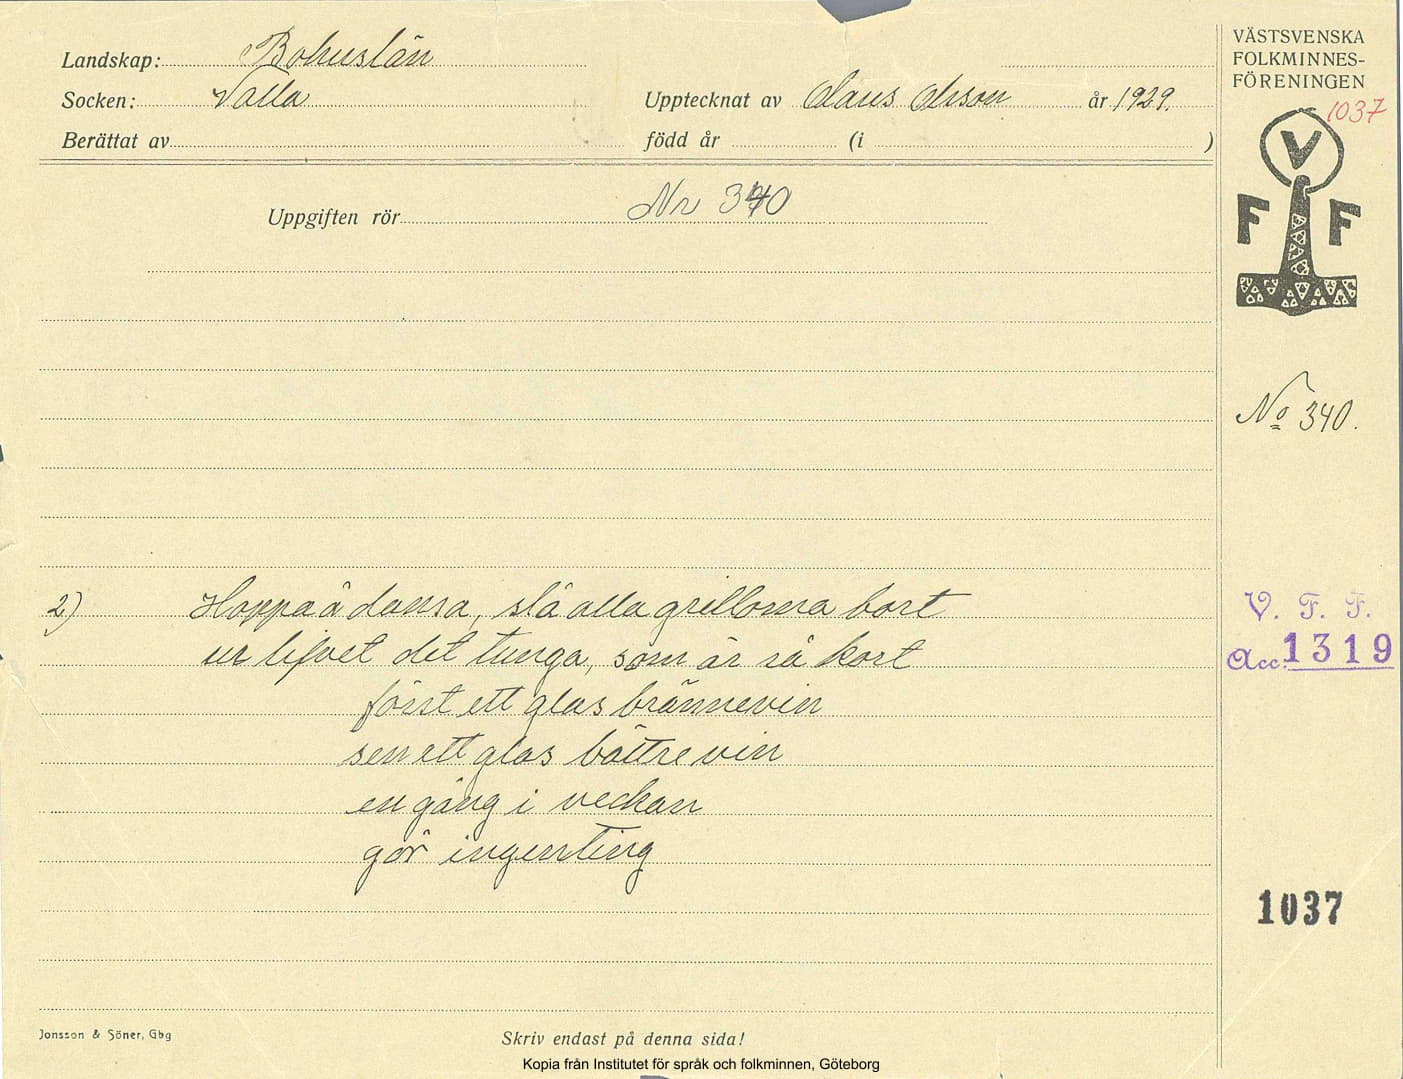 Landskap: Bohuslän
Socken: Valla
Upptecknat av Claus Olsson år 1929.
Berättat av
född år (i )
Uppgiften rör Nr 340
2) Hoppa å dansa, slå alla grillorna bort
ur lifvet det tunga, som är så kort
först ett glas brännevin
sen ett glas bättre vin
en gång i veckan
gör ingenting
VÄSTSVENSKA
FOLKMINNES-
FÖRENINGEN
1037
V
F F
No 340.
V. F. F.
Acc. 1319
1037
Jonsson & Söner, Gbg
Skriv endast på denna sida!
Kopia från Institutet för språk och folkminnen, Göteborg